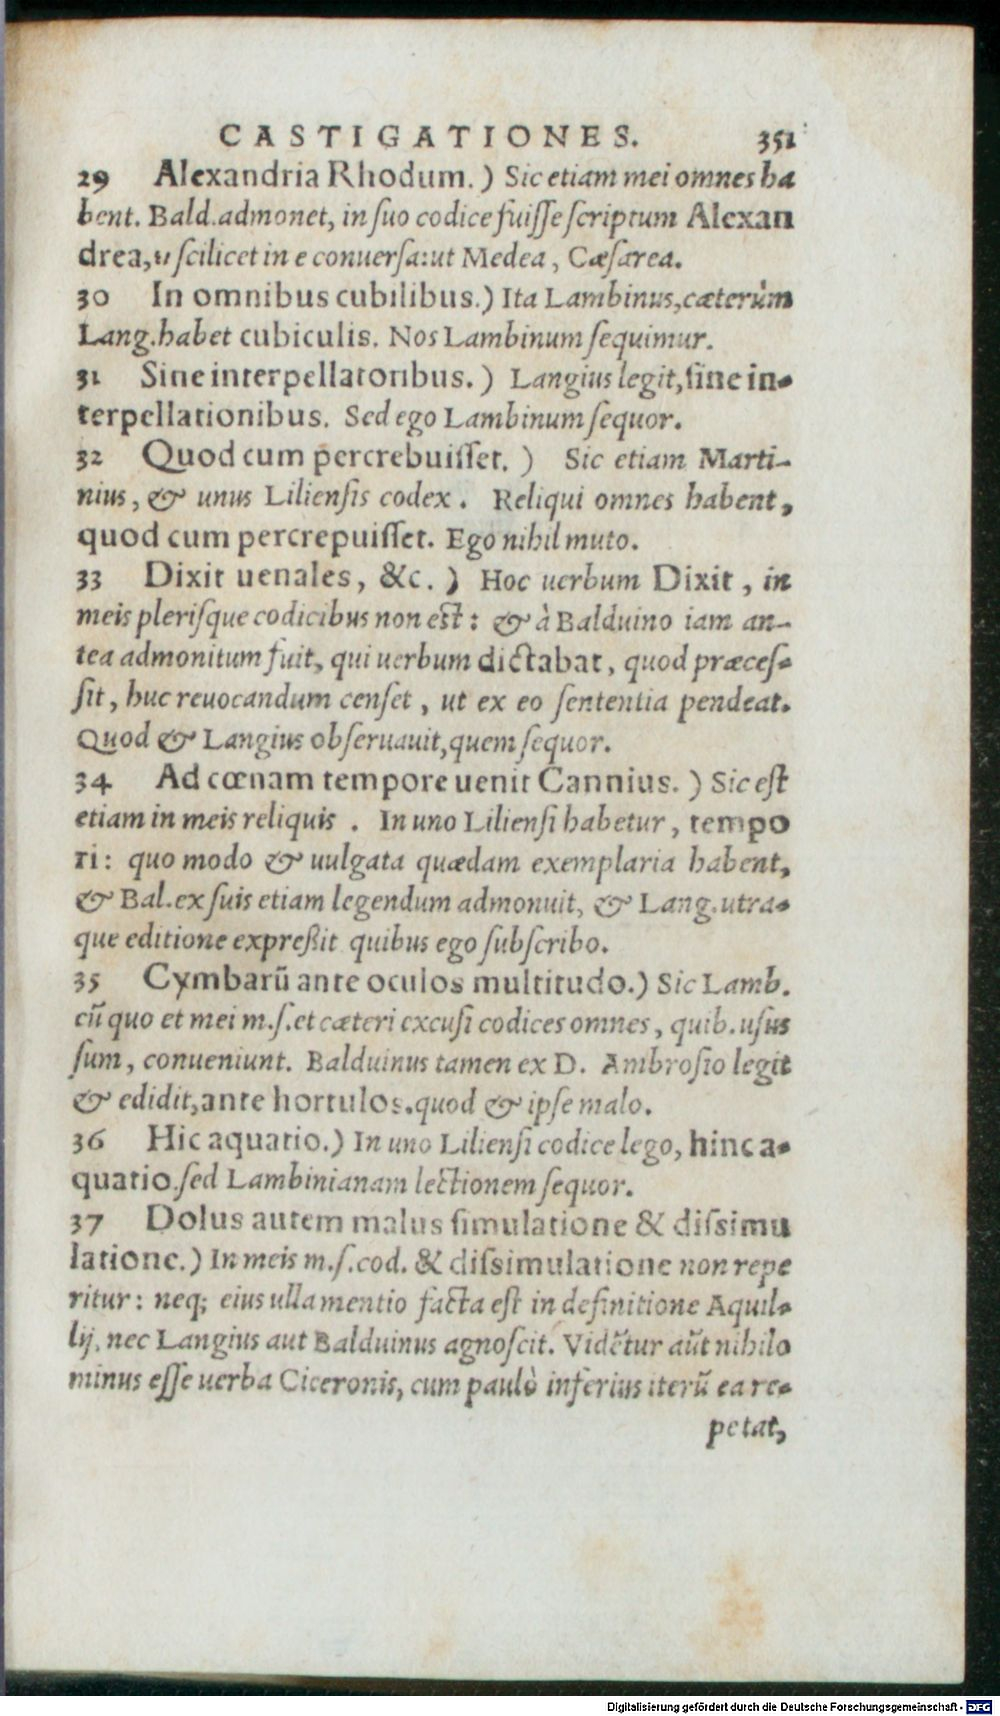 CASTIGATIONES. 351
29 Alexandria Rhodum.) Sic etiam mei omnes ha
bent. Bald. admonet, in suo codice fuisse scriptum Alexan
drea, ει scilicet in e conuersa: ut Medea, Cæsarea.
30 In omnibus cubilibus.) Ita Lambinus, cæterùm
Lang. habet cubiculis. Nos Lambinum sequimur.
31 Sine interpellatoribus.) Langius legit, sine in-
terpellationibus. Sed ego Lambinum sequor.
32 Quod cum percrebuisset.) Sic etiam Marti-
nius, & unus Liliensis codex. Reliqui omnes habent,
quod cum percrepuisset. Ego nihil muto.
33 Dixit uenales, &c.) Hoc uerbum Dixit, in
meis plerisque codicibus non est: & à Balduino iam an-
tea admonitum fuit, qui uerbum dictabat, quod præces-
sit, huc reuocandum censet, ut ex eo sententia pendeat.
Quod & Langius obseruauit, quem sequor.
34 Ad cœnam tempore uenit Cannius.) Sic est
etiam in meis reliquis. In uno Liliensi habetur, tempo
ri: quo modo & uulgata quædam exemplaria habent,
& Bal. ex suis etiam legendum admonuit, & Lang. utra-
que editione expreßit quibus ego subscribo.
35 Cymbarũ ante oculos multitudo.) Sic Lamb.
cũ quo et mei m.s. et cæteri excusi codices omnes, quib. usus
sum, conueniunt. Balduinus tamen ex D. Ambrosio legit
& edidit, ante hortulos. quod & ipse malo.
36 Hic aquatio.) In uno Liliensi codice lego, hinc a-
quatio. sed Lambinianam lectionem sequor.
37 Dolus autem malus simulatione & dissimu
latione.) In meis m.s. cod. & dissimulatione non repe
ritur: neq; eius ulla mentio facta est in definitione Aquil-
lij, nec Langius aut Balduinus agnoscit. Vidẽtur aũt nihilo
minus esse uerba Ciceronis, cum paulò inferius iterũ ea re-
petat,
Digitalisierung gefördert durch die Deutsche Forschungsgemeinschaft - DFG